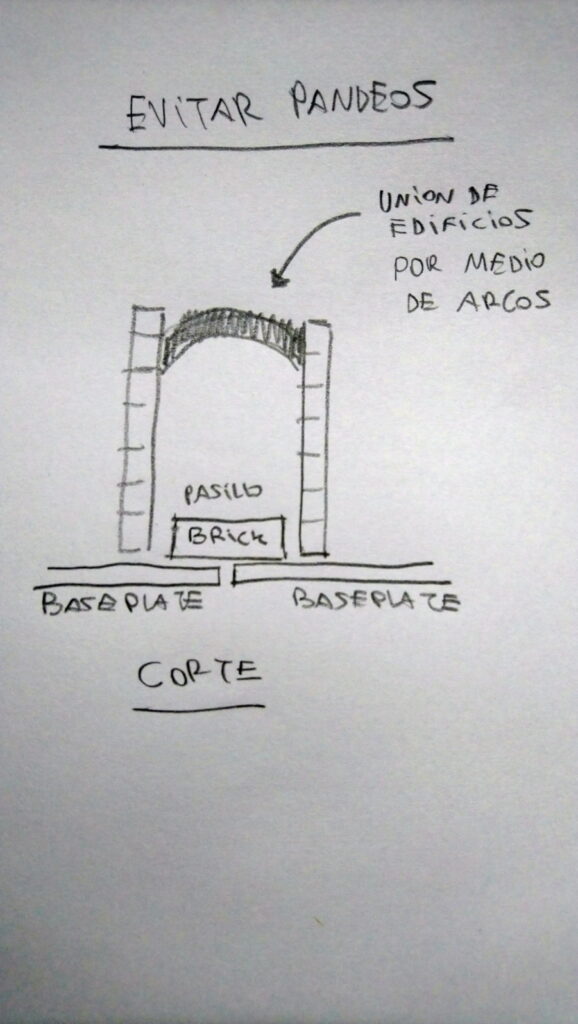 EVITAR PANDEOS
UNION DE
EDIFICIOS
POR MEDIO
DE ARCOS
PASILLO
BRICK
BASEPLATE
BASEPLATE
CORTE